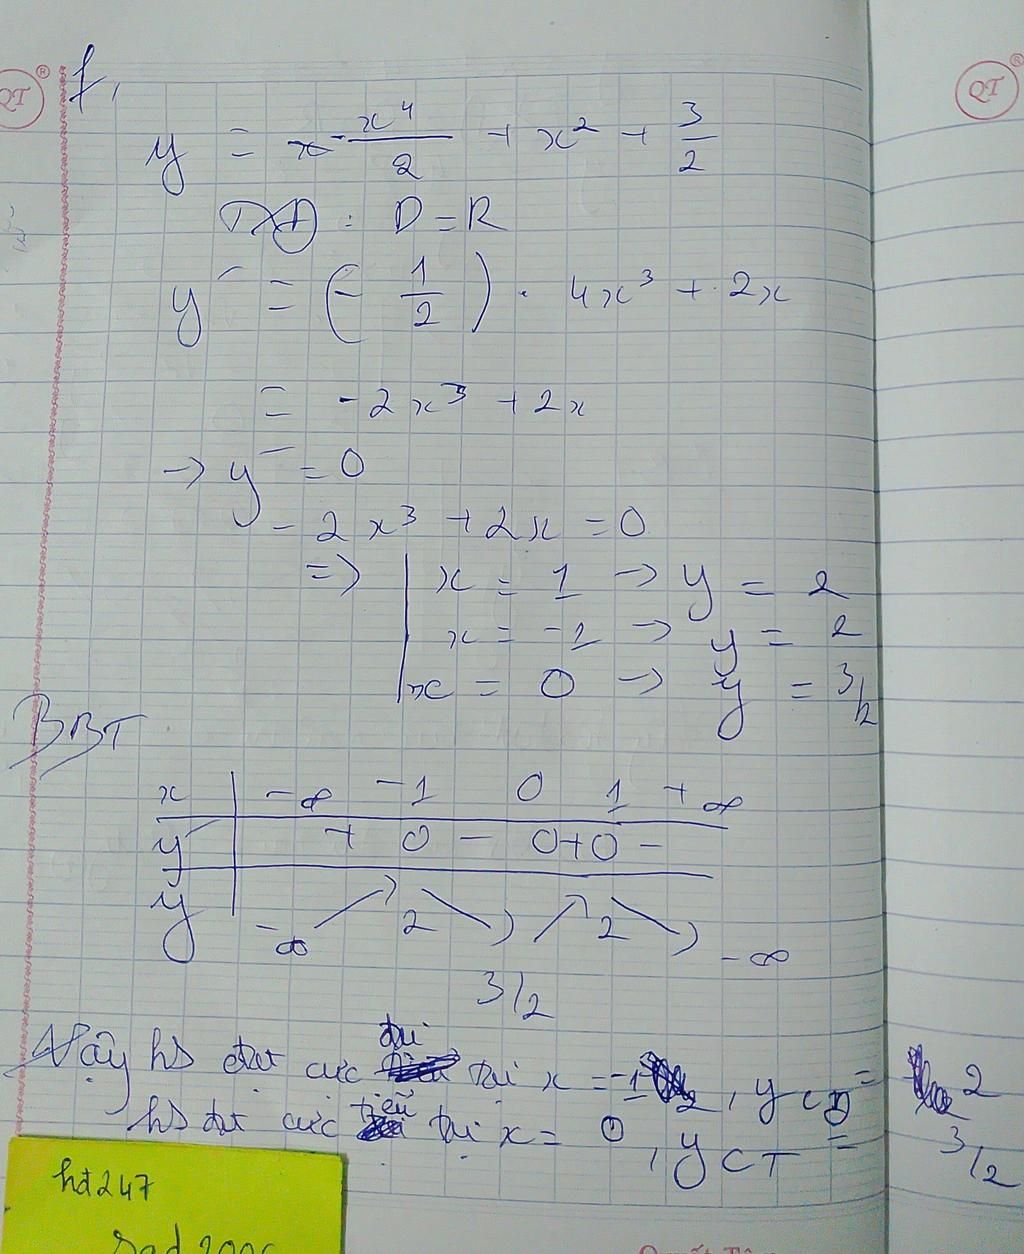 f,
y = - x⁴/2 + x² + 3/2
TXĐ : D = R
y' = (- 1/2) . 4x³ + 2x
= -2x³ + 2x
→ y' = 0
- 2x³ + 2x = 0
=> x = 1 → y = 2
x = -1 → y = 2
x = 0 → y = 3/2
BBT
x -∞ -1 0 1 +∞
y' + 0 - 0 + 0 -
y -∞ 2 3/2 2 -∞
Vậy hs đạt cực đại tại x = -1, yCĐ = 2
hs đạt cực tiểu tại x = 0, yCT = 3/2
hđ247
QT
QT